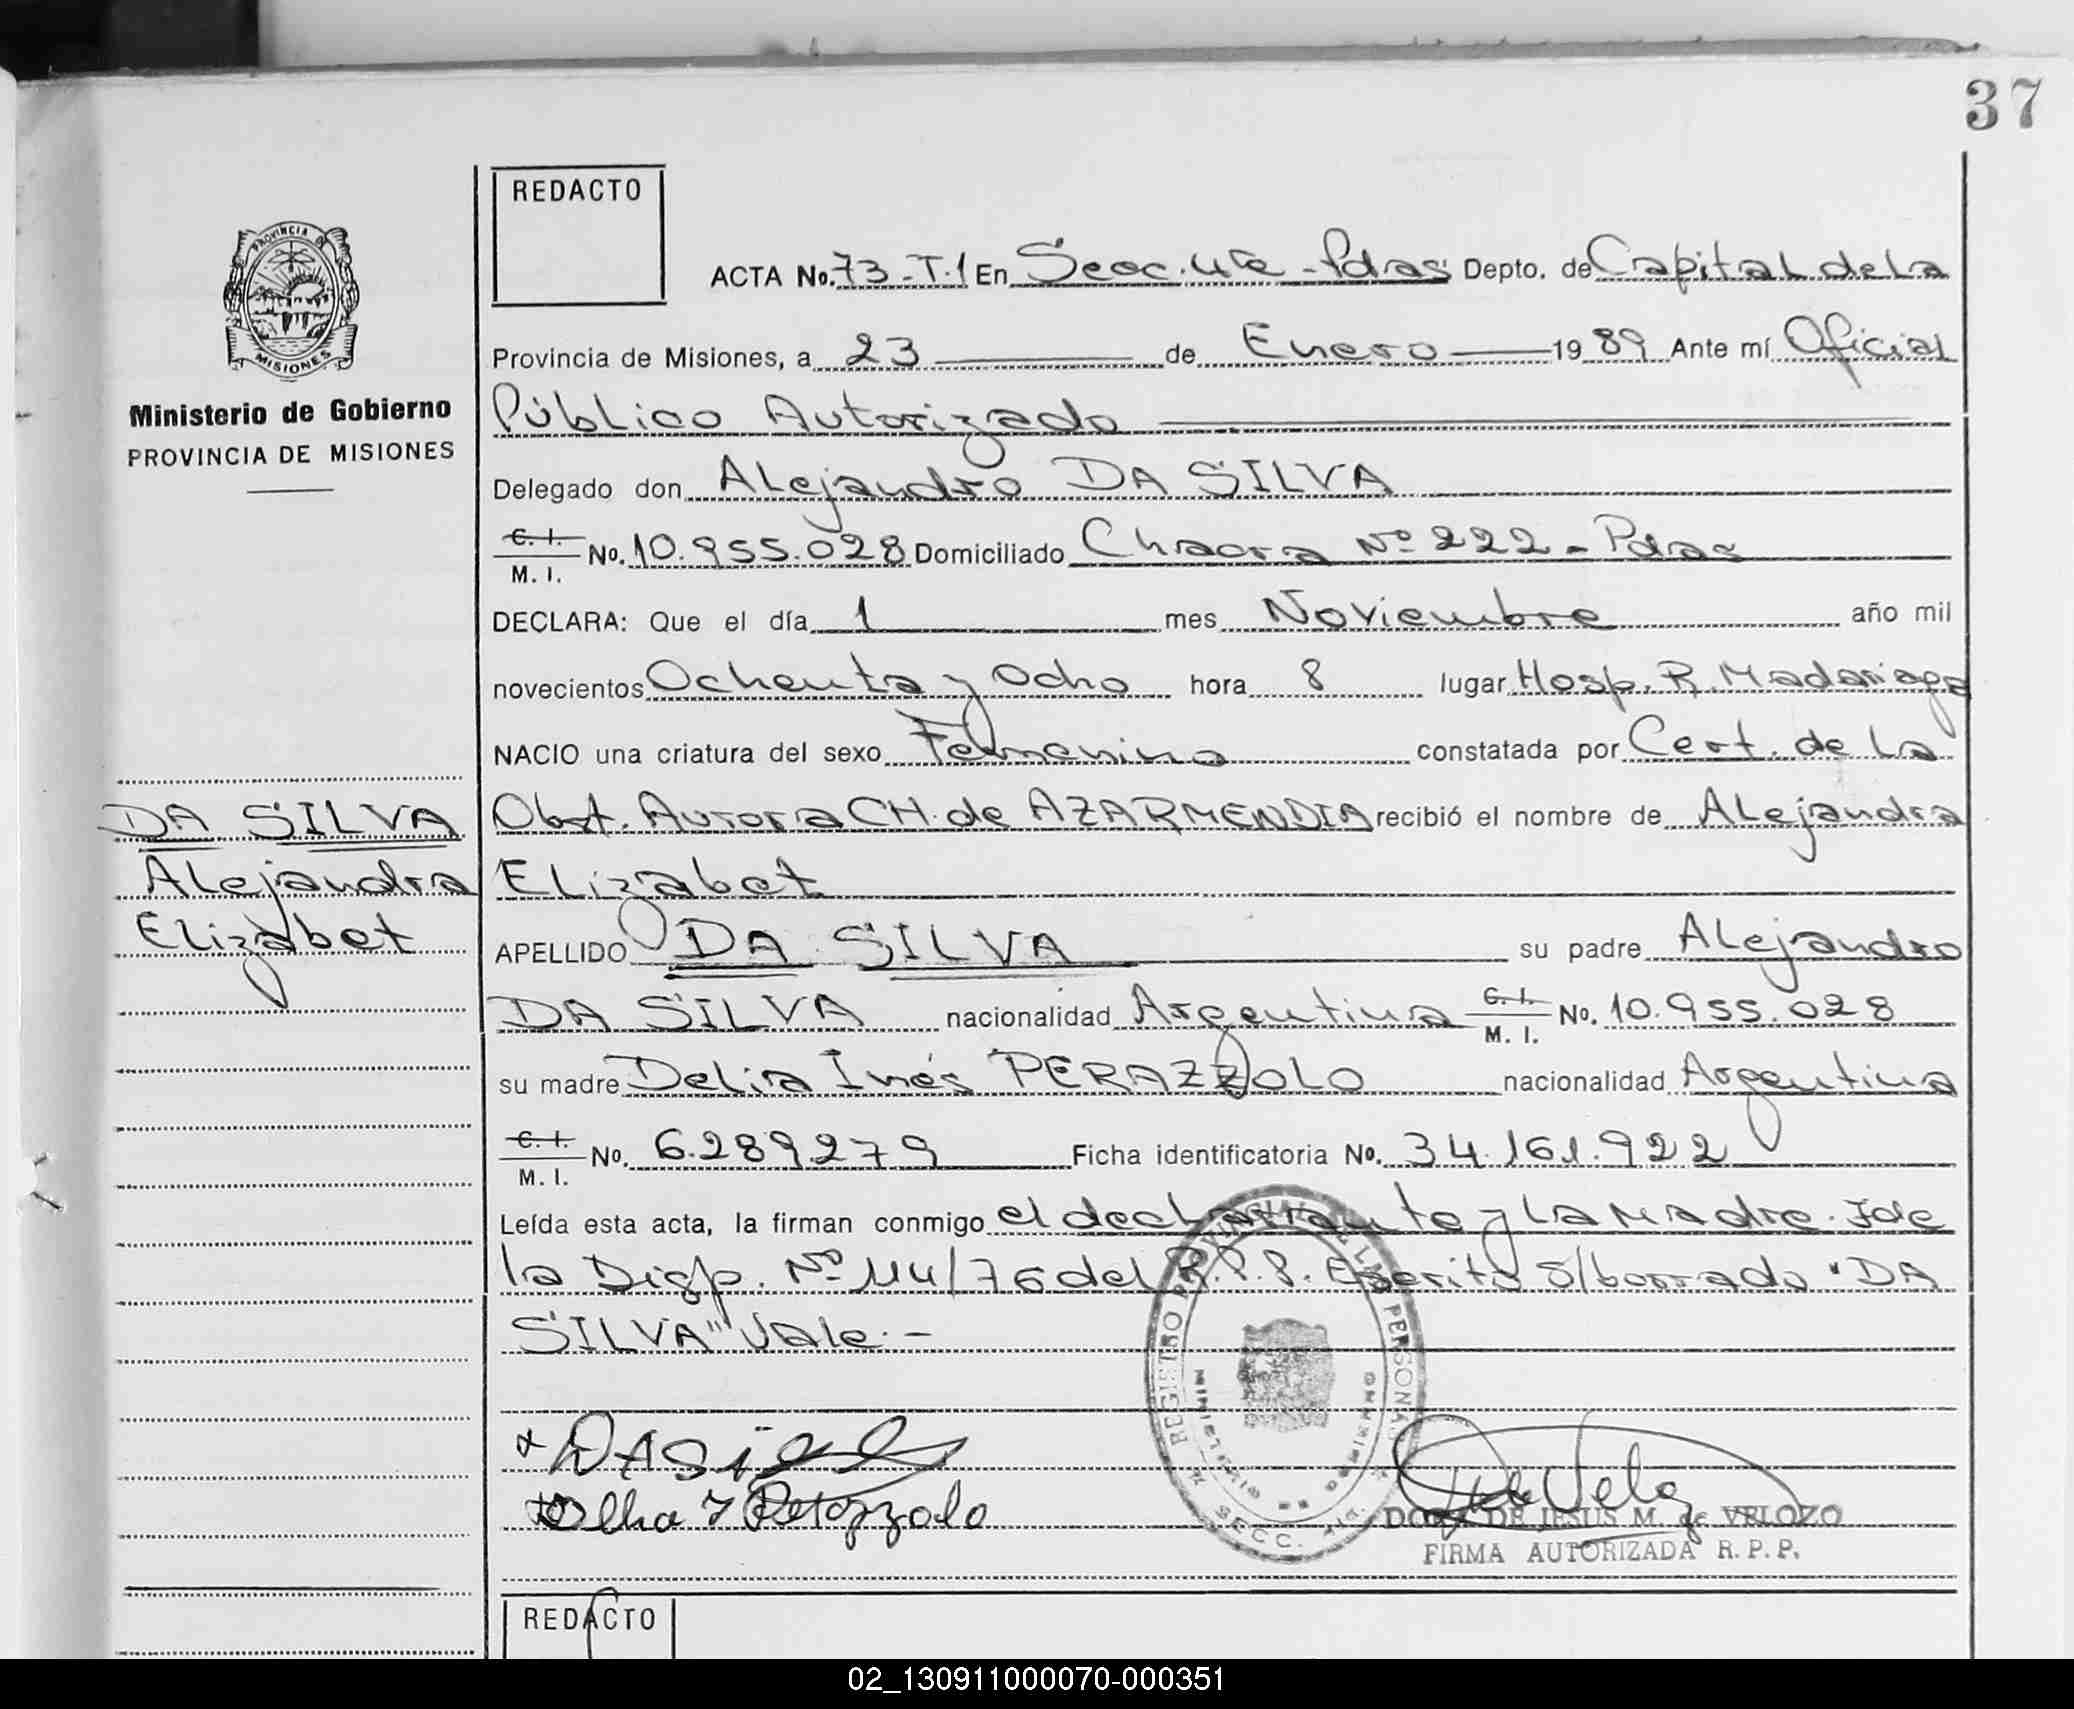 37
REDACTO
PROVINCIA DE
MISIONES
Ministerio de Gobierno
PROVINCIA DE MISIONES
ACTA No. 73-T.1 En Secc. 4ta - Pdas Depto. de Capital de La
Provincia de Misiones, a 23 de Enero 1989 Ante mí Oficial
Público Autorizado
Delegado don Alejandro DA SILVA
C. I. / M. I. No. 10.955.028 Domiciliado Chacra Nº 222 - Pdas
DECLARA: Que el día 1 mes Noviembre año mil
novecientos Ochenta y Ocho hora 8 lugar Hosp. R. Madariaga
NACIO una criatura del sexo Femenino constatada por Cert. de La
Obst. Aurora CH. de AZARMENDIA recibió el nombre de Alejandra
Elizabet
APELLIDO DA SILVA su padre Alejandro
DA SILVA nacionalidad Argentina C. I. / M. I. No. 10.955.028
su madre Delia Inés PERAZZOLO nacionalidad Argentina
C. I. / M. I. No. 6.289279 Ficha identificatoria No. 34.161.922
Leída esta acta, la firman conmigo el declarante y la Madre.
la Disp. Nº 114/76 del R.P.P. Escrito S/borrado "DA
SILVA" Vale.-
DA SILVA
Alejandra
Elizabet
REGISTRO PROVINCIAL DE LAS PERSONAS
SECC.
DA Sil
Perazzolo
de Veloz
DE JESUS M. de VELOZO
FIRMA AUTORIZADA R.P.P.
REDACTO
02_130911000070-000351